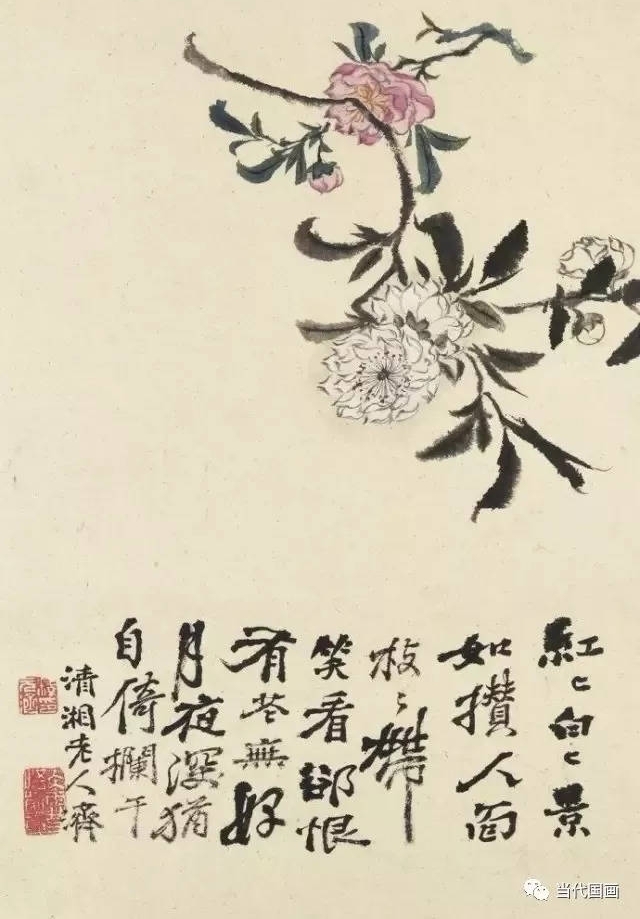 紅〻白〻景
如攢人面
枝〻帶
笑看卻恨
有花無好
月夜深猶
自倚欄干
清湘老人濟
当代国画